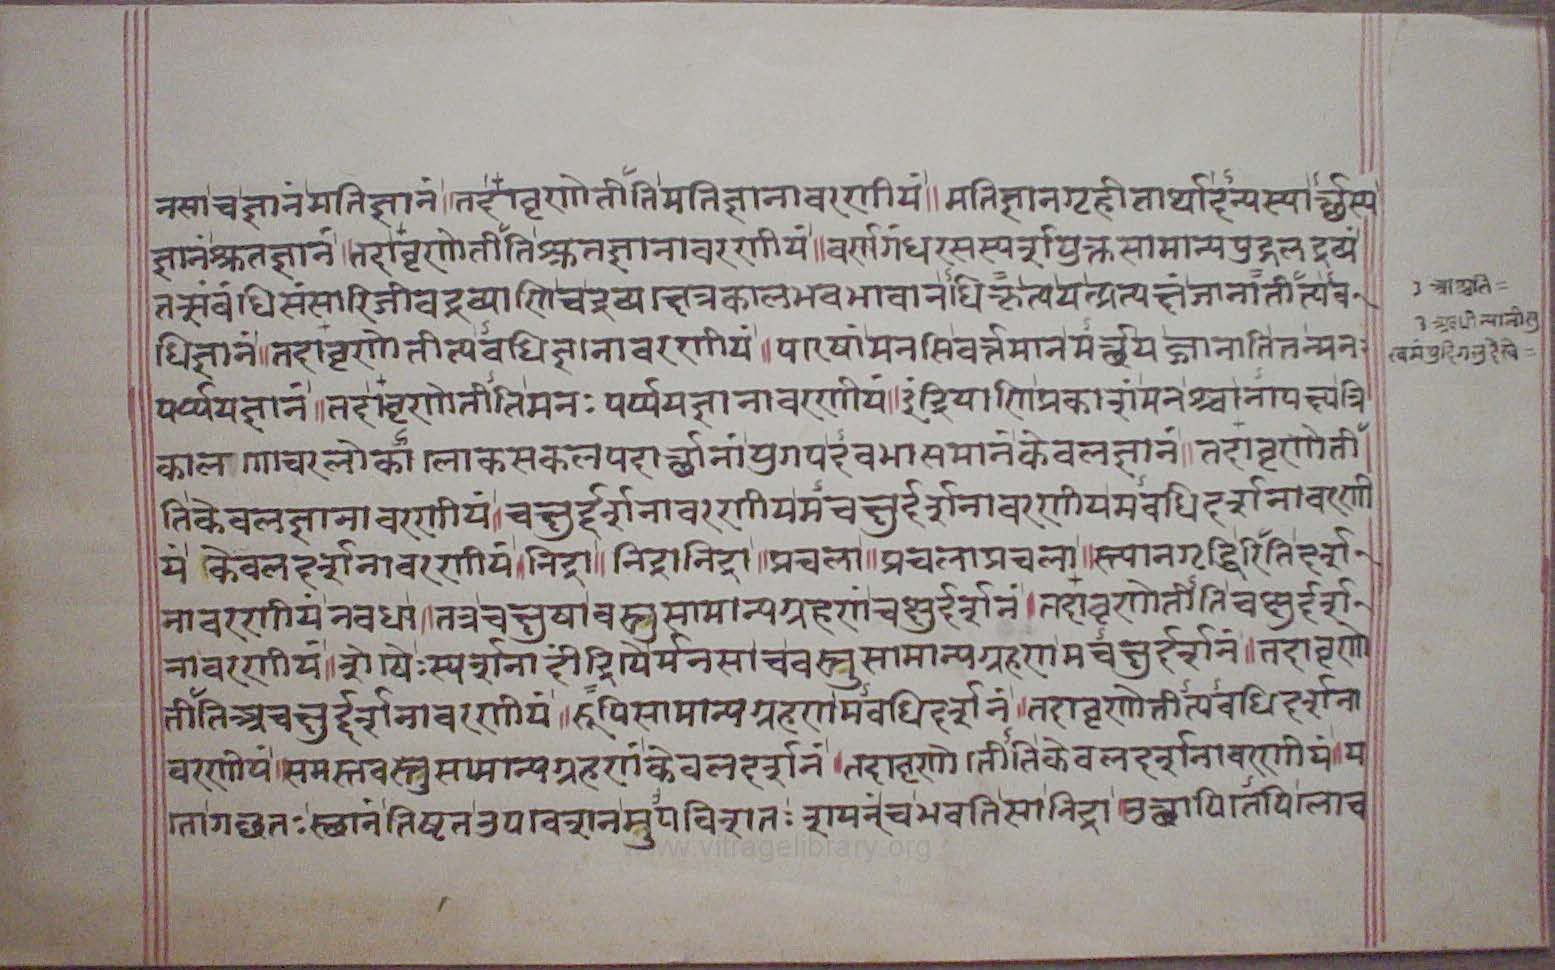 नसा च ज्ञानं मतिज्ञानं॥ तदावृणोतीति मतिज्ञानावरणीयं॥ मतिज्ञानगृहीतार्थादन्यस्यार्च्छस्य
ज्ञानं श्रुतज्ञानं॥ तदावृणोतीति श्रुतज्ञानावरणीयं॥ वर्णगंधरसस्पर्शयुक्तसामान्यपुद्गलद्रव्यं
तत्संबंधिसंसारिजीवद्रव्याणि च द्रव्यक्षेत्रकालभवभावानधिकृत्य यत्प्रत्यक्षं जानातीत्यव-
धिज्ञानं॥ तदावृणोतीत्यवधिज्ञानावरणीयं॥ परेषां मनसि वर्त्तमानमर्च्छं यज्जानाति तन्मनः
पर्य्ययज्ञानं॥ तदावृणोतीति मनः पर्य्ययज्ञानावरणीयं॥ इंद्रियाणि प्रकाशं मनश्चानापेक्ष्य त्रि
कालगोचरलोकालोकसकलपदार्च्छानां युगपदवभासमानं केवलज्ञानं॥ तदावृणोती
ति केवलज्ञानावरणीयं॥ चक्षुर्दर्शनावरणीयमचक्षुर्दर्शनावरणीयमवधिदर्शनावरणी
यं केवलदर्शनावरणीयं॥ निद्रा॥ निद्रानिद्रा॥ प्रचला॥ प्रचलाप्रचला॥ स्त्यानगृद्धिरिति दर्श-
नावरणीयं नवधा॥ तत्र चक्षुषा वस्तुसामान्यग्रहणं चक्षुर्दर्शनं। तदावृणोतीति चक्षुर्दर्श-
नावरणीयं॥ शेषैः स्पर्शनादींद्रियैर्मनसा च वस्तुसामान्यग्रहणमचक्षुर्दर्शनं॥ तदावृणो
तीति अचक्षुर्द्दर्शनावरणीयं॥ रूपिसामान्यग्रहणमवधिदर्शनं॥ तदावृणोतीत्यवधिदर्शना
वरणीयं॥ समस्तवस्तुसामान्यग्रहणं केवलदर्शनं। तदावृणोतीति केवलदर्शनावरणीयं॥ य
तो गच्छतः स्छानं तिष्ठत उपवेशनमुपविशतः शयनं च भवति सा निद्रा। उच्छापितेपि लोच
१ आश्रुति=
www.vitragelibrary.org